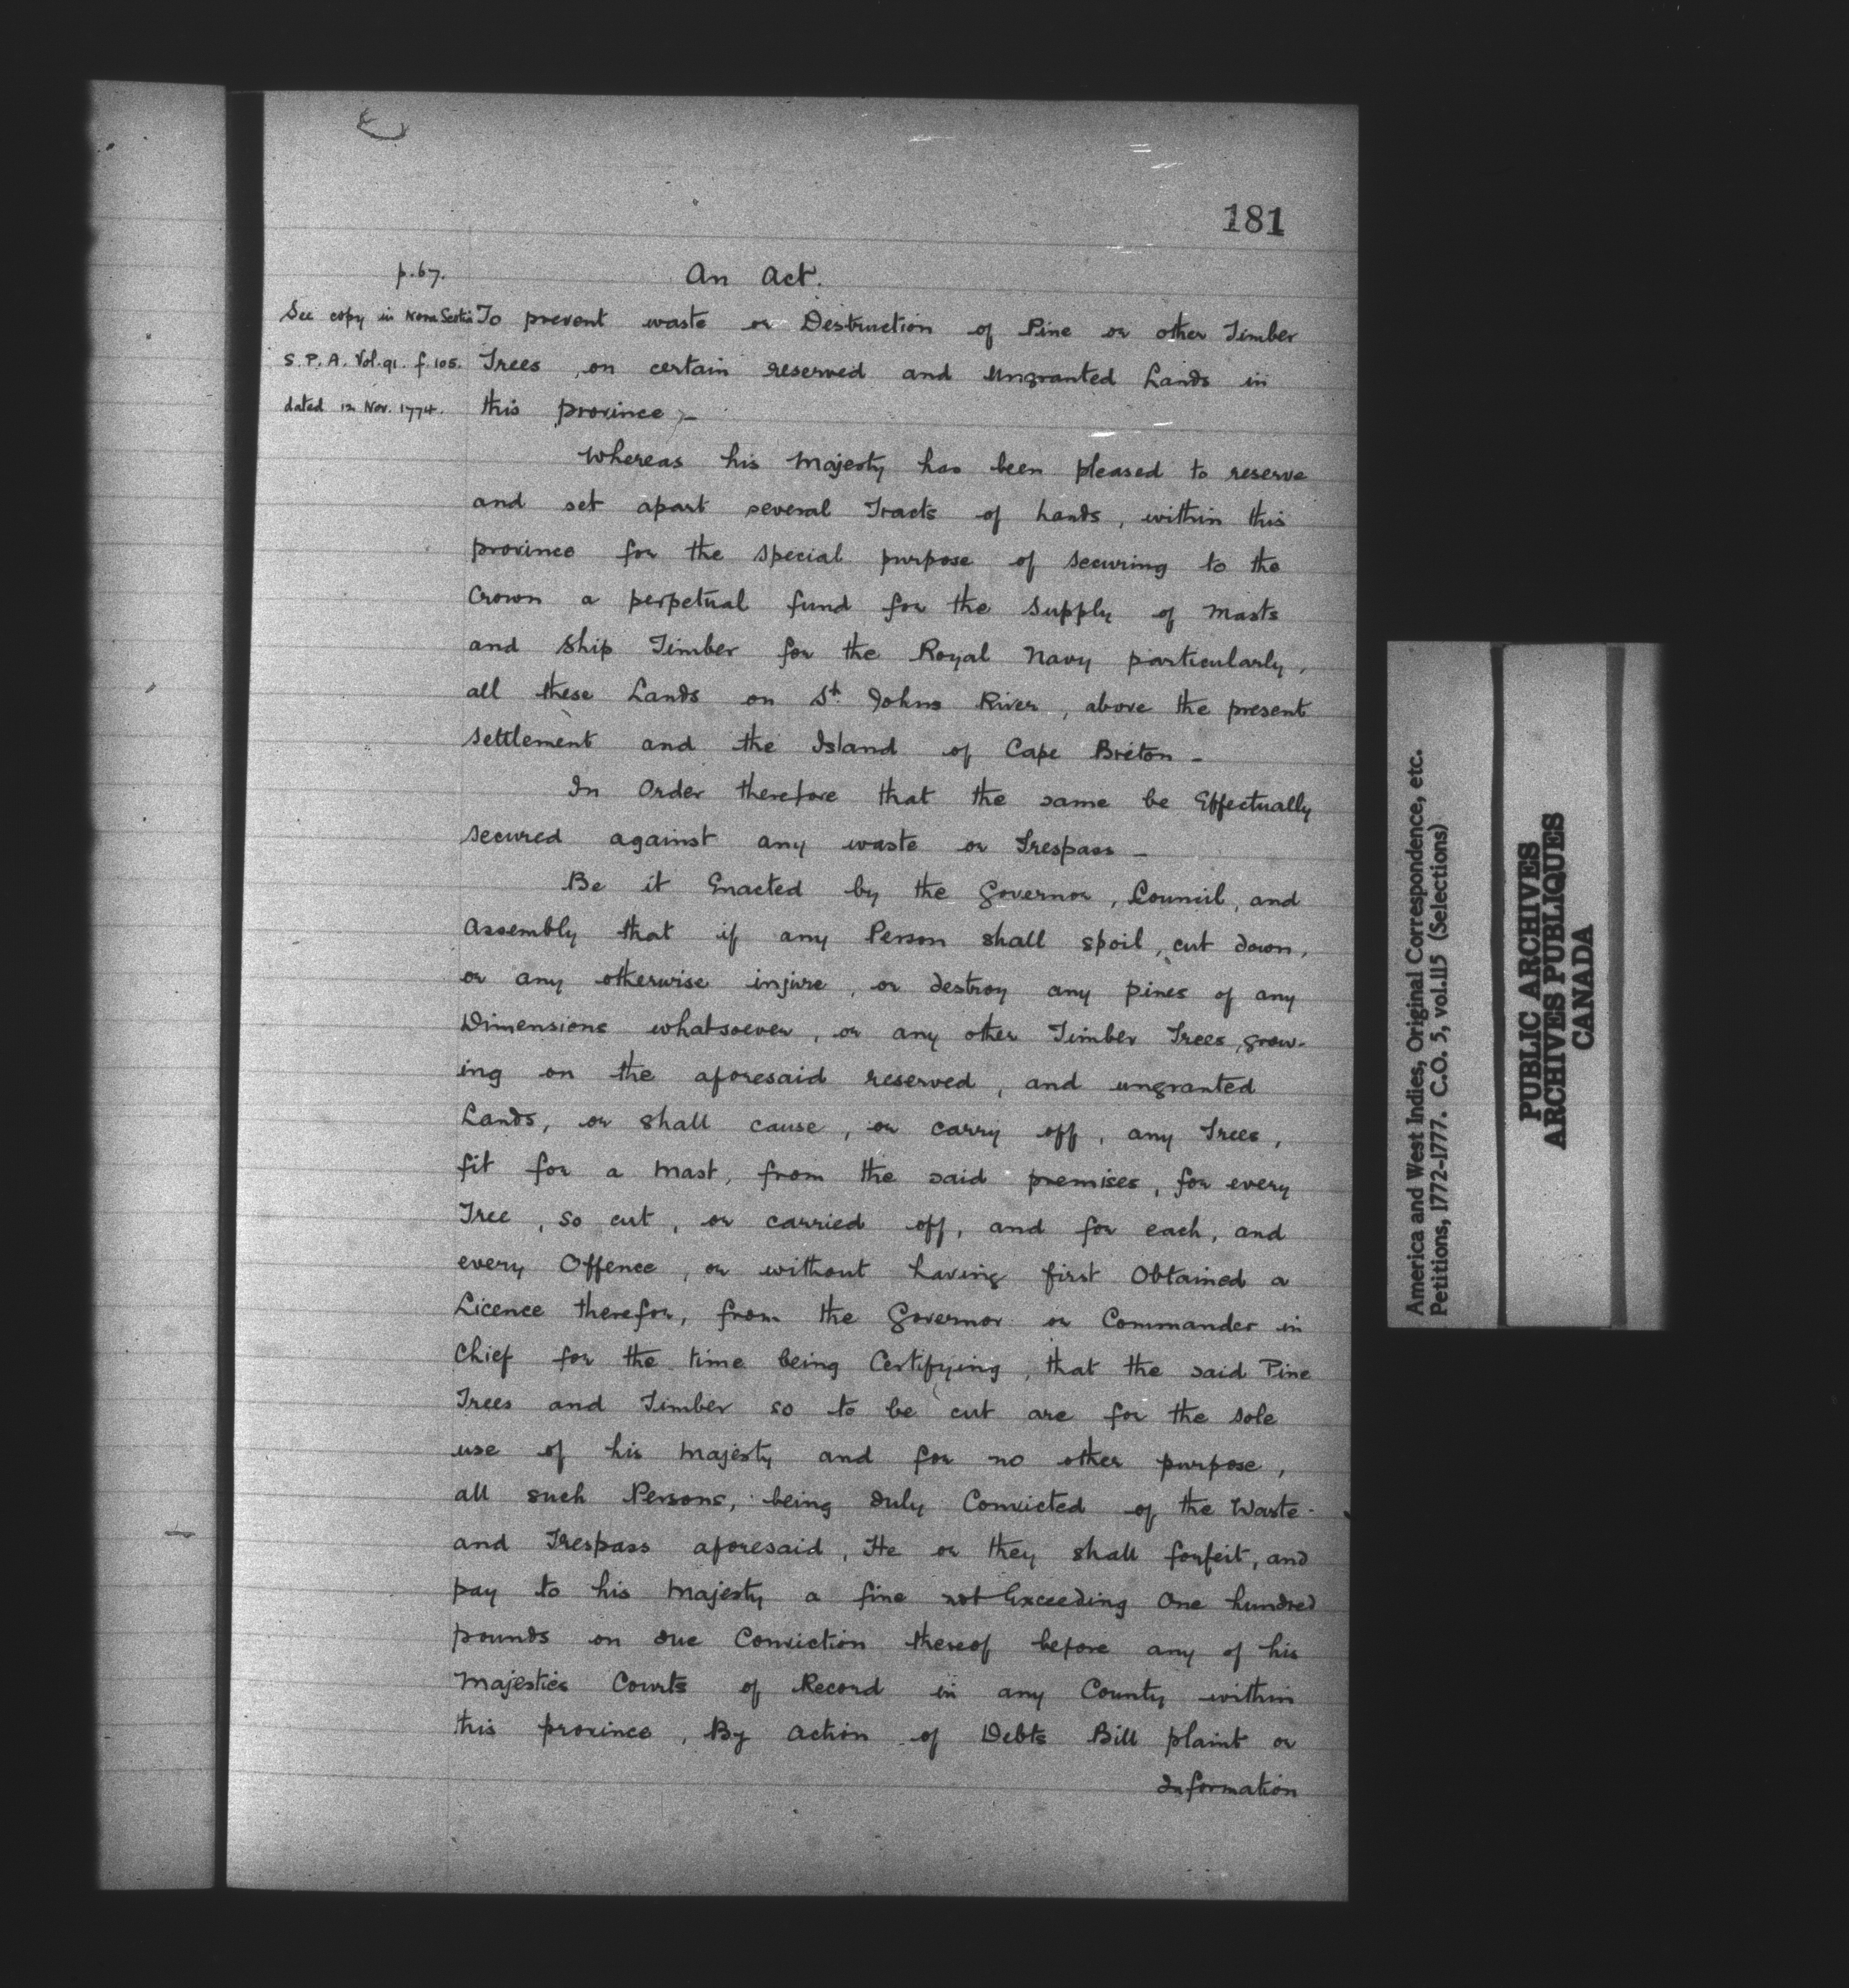 181
p.67.
An Act.
See copy in Nova Scotia
S.P.A. Vol.91. f.105.
dated 12 Nov. 1774.
To prevent waste or Destruction of Pine or other Timber
Trees, on certain reserved and Ungranted Lands in
this province;-
Whereas his Majesty has been pleased to reserve
and set apart several Tracts of Lands, within this
province for the special purpose of securing to the
Crown a perpetual fund for the supply of Masts
and Ship Timber for the Royal Navy particularly,
all these Lands on St. Johns River, above the present
settlement and the Island of Cape Breton -
In Order therefore that the same be Effectually
secured against any waste or Trespass -
Be it Enacted by the Governor, Council, and
Assembly that if any Person shall spoil, cut down,
or any otherwise injure, or destroy any pines of any
Dimensions whatsoever, or any other Timber Trees, grow-
ing on the aforesaid reserved, and ungranted
Lands, or shall cause, or carry off, any Trees,
fit for a Mast, from the said premises, for every
Tree, so cut, or carried off, and for each, and
every Offence, or without having first Obtained a
Licence therefor, from the Governor or Commander in
Chief for the time being Certifying, that the said Pine
Trees and Timber so to be cut are for the sole
use of his Majesty and for no other purpose,
all such Persons, being duly Convicted of the Waste
and Trespass aforesaid, He or they shall forfeit, and
pay to his Majesty a fine not Exceeding One hundred
pounds on due Conviction thereof before any of his
Majesties Courts of Record in any County within
this province, By Action of Debts Bill plaint or
Information
America and West Indies, Original Correspondence, etc.
Petitions, 1772-1777. C.O. 5, vol.115 (Selections)
PUBLIC ARCHIVES
ARCHIVES PUBLIQUES
CANADA